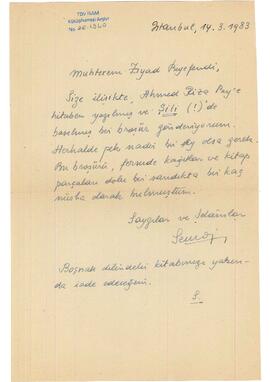 TDV İSAM
Kütüphanesi Arşivi
No ZE.1360
Istanbul, 14.3.1983
Muhterem Ziyad Beyefendi,
Size ilişikte, Ahmed Rıza Bey'e
hitaben yazılmış ve Şili (!)'de
basılmış bir broşür gönderiyorum.
Herhalde pek nadir bir şey olsa gerek.
Bu broşürü, forunda kağıtları ve kitap
parçaları dolu bir sandıkta bir kaç
nüsha olarak bulmuştum.
Saygılar ve selamlar
Boşnak dilindeki kitabınızı yakın-
da iade edeceğim.
S.